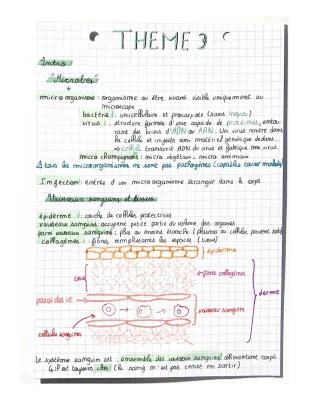 THEME 3
Intro
"Microbes"
micro organisme: organisme ou être vivant visible uniquement au
microscope
bactérie: unicellulaire et procaryote (sans noyau)
virus: structure formée d'une capside de protéines, entou-
rant des brins d'ADN ou ARN. Un virus rentre dans
la cellule et injecte son matériel génétique dedans.
⇒ cellule transcrit ADN de virus et fabrique new virus.
micro champignons: micro végétaux, micro animaux
⚠ tous les microorganismes ne sont pas pathogènes (capables causer maladie)
Infection: entrée d'un microorganisme étranger dans le corps
Vaisseaux sanguins et tissus
épiderme: couche de cellules protectrices
vaisseaux sanguins: occupent petite partie du volume des organes
paroi vaisseaux sanguins: plus ou moins étanche (plasma ou cellules peuvent sortir)
collagènes: fibres remplissants les espaces (tissu)
épiderme
tissu
fibres collagènes
derme
paroi des vs
vaisseau sanguin
cellules sanguines
Le système sanguin est: ensemble des vaisseaux sanguins alimentant corps
↳ il est toujours clos (le sang n'est pas censé en sortir)